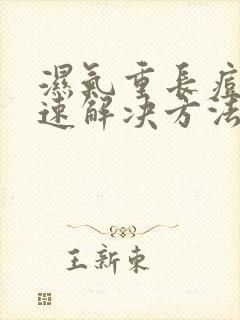 濕氣重長痘
速解决方法
王新東